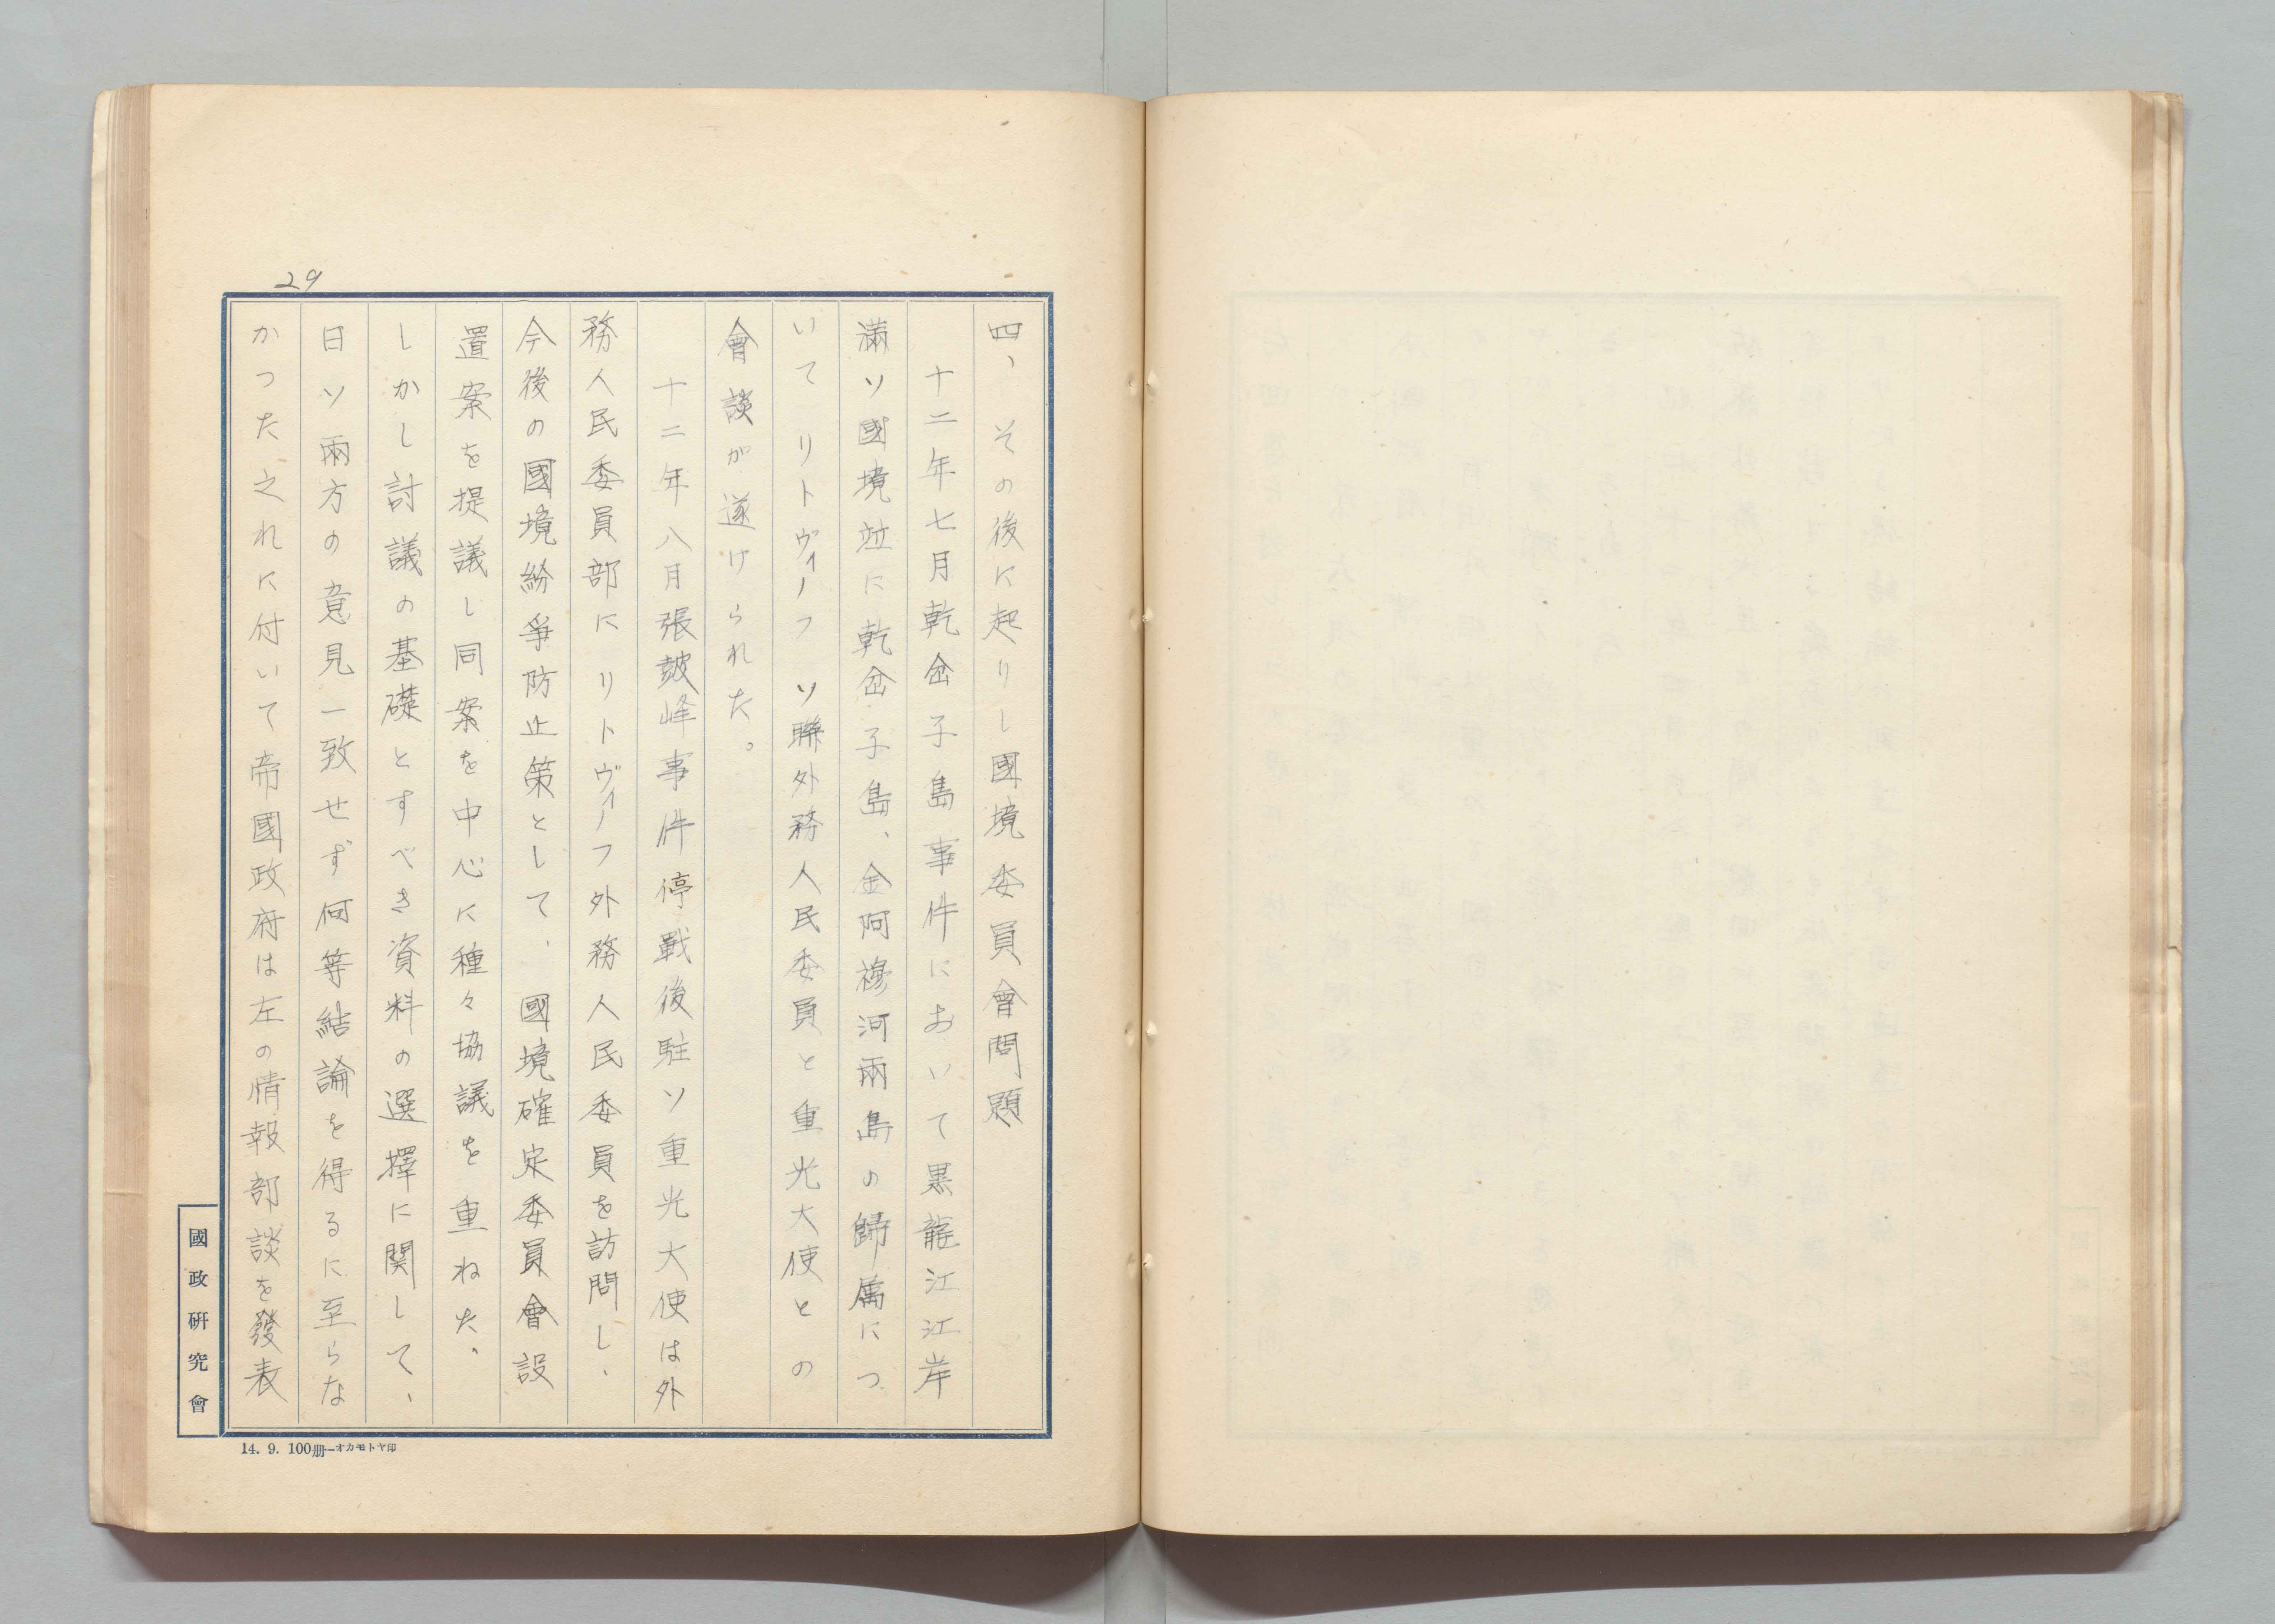 29
四、その後に起りし國境委員會問題
十二年七月乾岔子島事件において黒龍江江岸
滿ソ國境竝に乾岔子島、金阿穆河兩島の歸属につ
いてリトヴィノフソ聯外務人民委員と重光大使との
會談が遂けられた。
十二年八月張皷峰事件停戰後駐ソ重光大使は外
務人民委員部にリトヴィノフ外務人民委員を訪問し、
今後の國境紛爭防止策として、國境確定委員會設
置案を提議し同案を中心に種々協議を重ねた。
しかし討議の基礎とすべき資料の選擇に関して、
日ソ兩方の意見一致せず何等結論を得るに至らな
かつた之れに付いて帝國政府は左の情報部談を發表
國政研究會
14. 9. 100册—オカモトヤ印